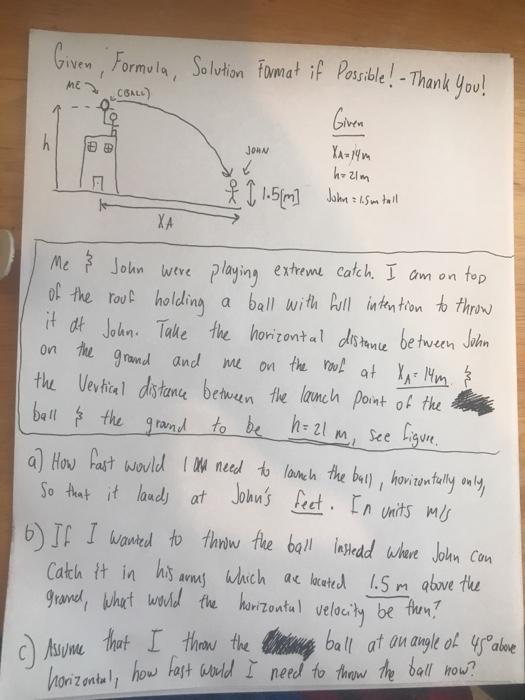 Given, Formula, Solution Format if Possible! - Thank You!
ME
(BALL)
h
JOHN
1.5[m]
XA
Given
XA = 14m
h = 21m
John = 1.5m tall
Me & John were playing extreme catch. I am on top
of the roof holding a ball with full intention to throw
it at John. Take the horizontal distance between John
on the grand and me on the roof at XA = 14m &
the Vertical distance between the launch point of the
ball & the grand to be h = 21 m, see figure.
a) How fast would I need to launch the ball, horizontally only,
So that it lands at John's feet. In units m/s
b) If I wanted to throw the ball instead where John can
Catch it in his arms which are located 1.5 m above the
grand, what would the horizontal velocity be then?
c) Assume that I throw the ball at an angle of 45° above
horizontal, how fast would I need to throw the ball now?